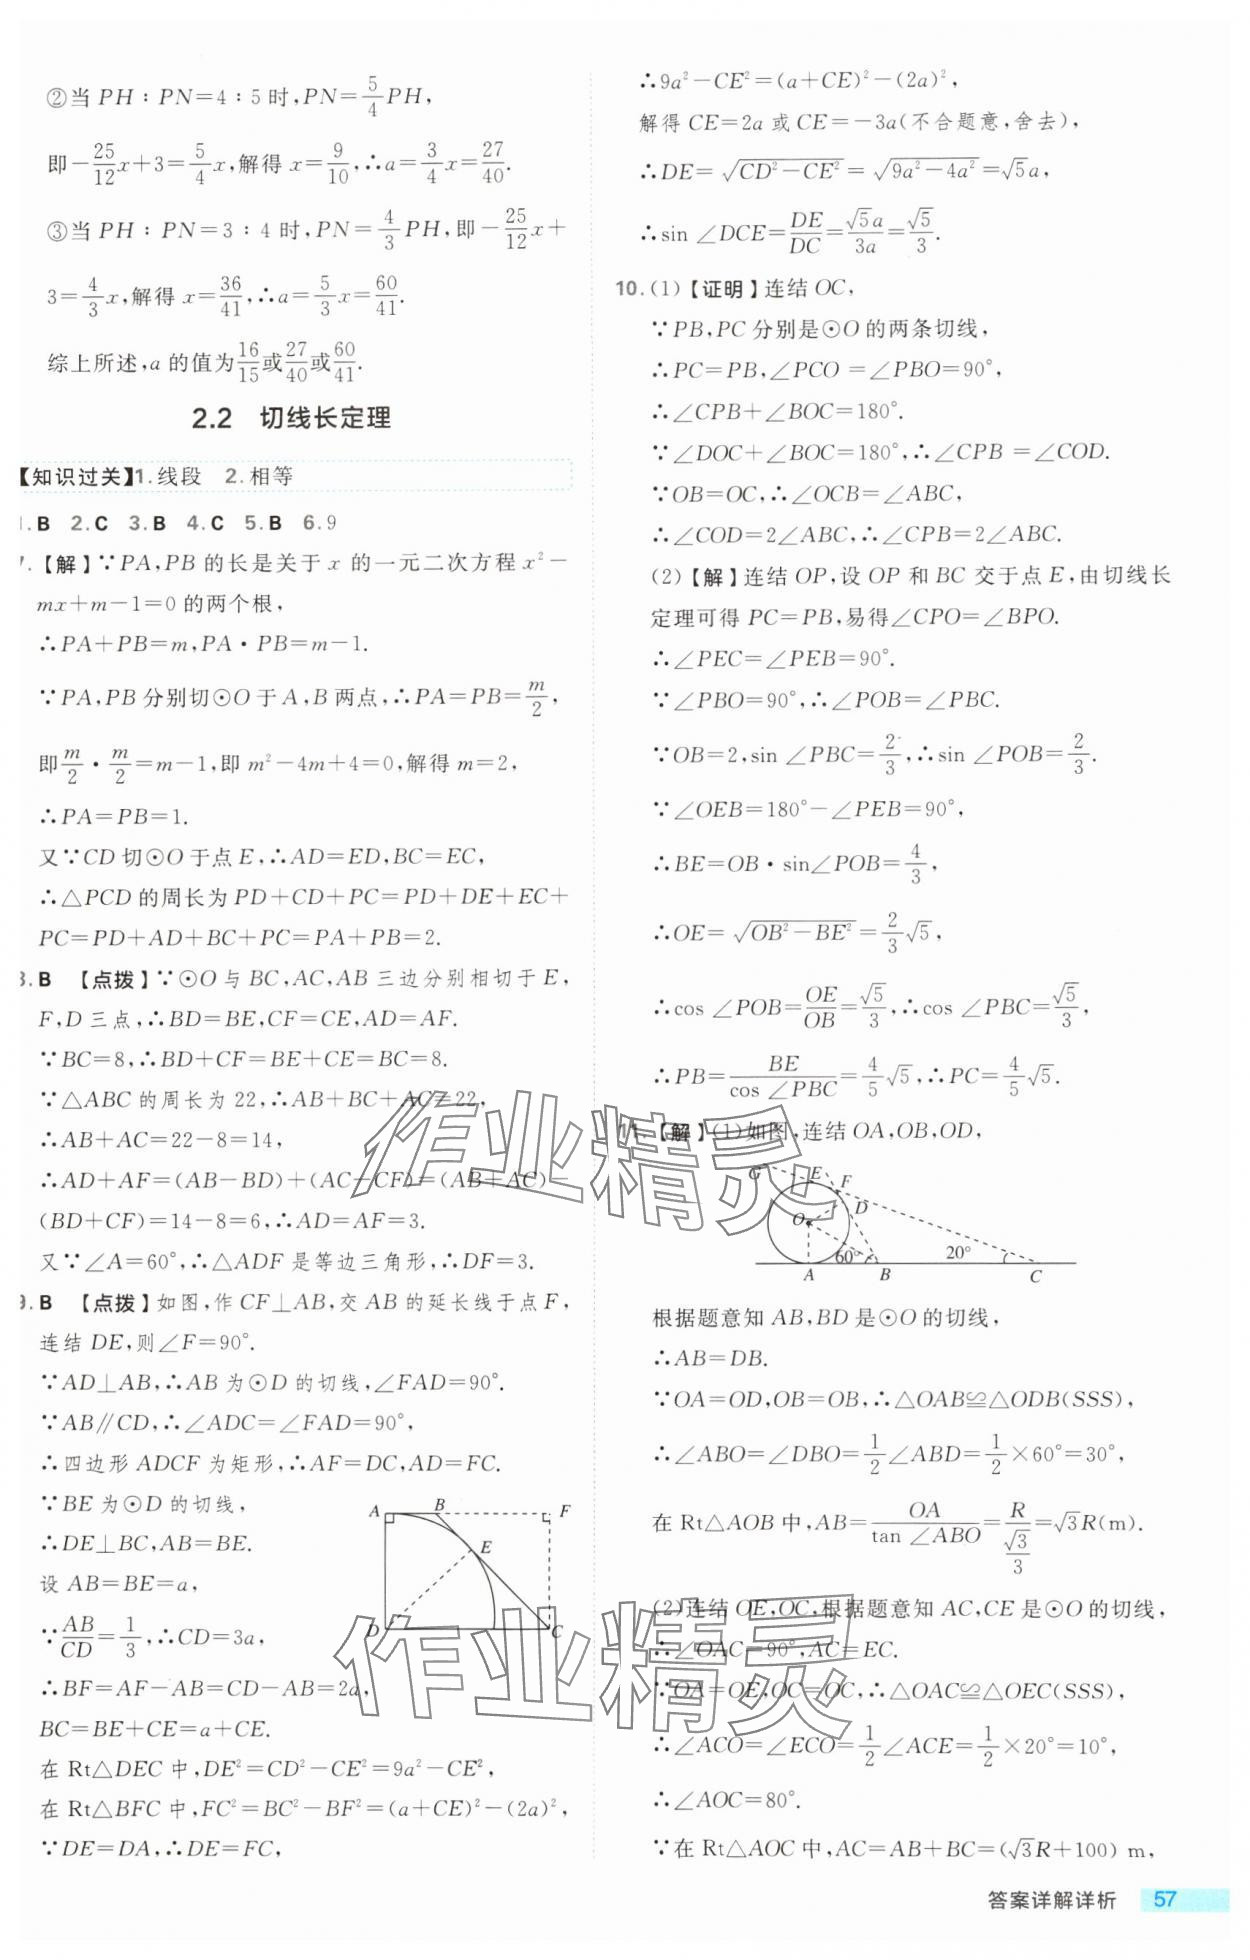 ②当 PH∶PN=4∶5 时,PN=5/4PH,
即-25/12x+3=5/4x,解得 x=9/10,∴a=3/4x=27/40.
③当 PH∶PN=3∶4 时,PN=4/3PH,即-25/12x+
3=4/3x,解得 x=36/41,∴a=5/3x=60/41.
综上所述,a 的值为16/15或27/40或60/41.
2.2 切线长定理
【知识过关】1.线段 2.相等
1.B 2.C 3.B 4.C 5.B 6.9
7.【解】∵PA,PB 的长是关于 x 的一元二次方程 x²-
mx+m-1=0 的两个根,
∴PA+PB=m,PA·PB=m-1.
∵PA,PB 分别切⊙O 于 A,B 两点,∴PA=PB=m/2,
即m/2·m/2=m-1,即 m²-4m+4=0,解得 m=2,
∴PA=PB=1.
又∵CD 切⊙O 于点 E,∴AD=ED,BC=EC,
∴△PCD 的周长为 PD+CD+PC=PD+DE+EC+
PC=PD+AD+BC+PC=PA+PB=2.
8.B 【点拨】∵⊙O 与 BC,AC,AB 三边分别相切于 E,
F,D 三点,∴BD=BE,CF=CE,AD=AF.
∵BC=8,∴BD+CF=BE+CE=BC=8.
∵△ABC 的周长为 22,∴AB+BC+AC=22,
∴AB+AC=22-8=14,
∴AD+AF=(AB-BD)+(AC-CF)=(AB+AC)-
(BD+CF)=14-8=6,∴AD=AF=3.
又∵∠A=60°,∴△ADF 是等边三角形,∴DF=3.
9.B 【点拨】如图,作 CF⊥AB,交 AB 的延长线于点 F,
连结 DE,则∠F=90°.
∵AD⊥AB,∴AB 为⊙D 的切线,∠FAD=90°.
∵AB∥CD,∴∠ADC=∠FAD=90°,
∴四边形 ADCF 为矩形,∴AF=DC,AD=FC.
∵BE 为⊙D 的切线,
∴DE⊥BC,AB=BE.
设 AB=BE=a,
∵AB/CD=1/3,∴CD=3a,
∴BF=AF-AB=CD-AB=2a,
BC=BE+CE=a+CE.
在 Rt△DEC 中,DE²=CD²-CE²=9a²-CE²,
在 Rt△BFC 中,FC²=BC²-BF²=(a+CE)²-(2a)²,
∵DE=DA,∴DE=FC,
A B F
E
D C
∴9a²-CE²=(a+CE)²-(2a)²,
解得 CE=2a 或 CE=-3a(不合题意,舍去),
∴DE=√(CD²-CE²)=√(9a²-4a²)=√5a,
∴sin ∠DCE=DE/DC=√5a/3a=√5/3.
10.(1)【证明】连结 OC,
∵PB,PC 分别是⊙O 的两条切线,
∴PC=PB,∠PCO=∠PBO=90°,
∴∠CPB+∠BOC=180°.
∵∠DOC+∠BOC=180°,∴∠CPB=∠COD.
∵OB=OC,∴∠OCB=∠ABC,
∴∠COD=2∠ABC,∴∠CPB=2∠ABC.
(2)【解】连结 OP,设 OP 和 BC 交于点 E,由切线长
定理可得 PC=PB,易得∠CPO=∠BPO.
∴∠PEC=∠PEB=90°.
∵∠PBO=90°,∴∠POB=∠PBC.
∵OB=2,sin ∠PBC=2/3,∴sin ∠POB=2/3.
∵∠OEB=180°-∠PEB=90°,
∴BE=OB·sin∠POB=4/3,
∴OE=√(OB²-BE²)=2/3√5,
∴cos ∠POB=OE/OB=√5/3,∴cos ∠PBC=√5/3,
∴PB=BE/cos ∠PBC=4/5√5,∴PC=4/5√5.
11.【解】(1)如图,连结OA,OB,OD,
G E F
D
O
60° 20°
A B C
根据题意知 AB,BD 是⊙O 的切线,
∴AB=DB.
∵OA=OD,OB=OB,∴△OAB≌△ODB(SSS),
∴∠ABO=∠DBO=1/2∠ABD=1/2×60°=30°,
在 Rt△AOB 中,AB=OA/tan ∠ABO=R/(√3/3)=√3R(m).
(2)连结 OE,OC,根据题意知 AC,CE 是⊙O 的切线,
∴∠OAC=90°,AC=EC.
∵OA=OE,OC=OC,∴△OAC≌△OEC(SSS),
∴∠ACO=∠ECO=1/2∠ACE=1/2×20°=10°,
∴∠AOC=80°.
∵在 Rt△AOC 中,AC=AB+BC=(√3R+100) m,
作业精灵
作业精灵
答案详解详析 57